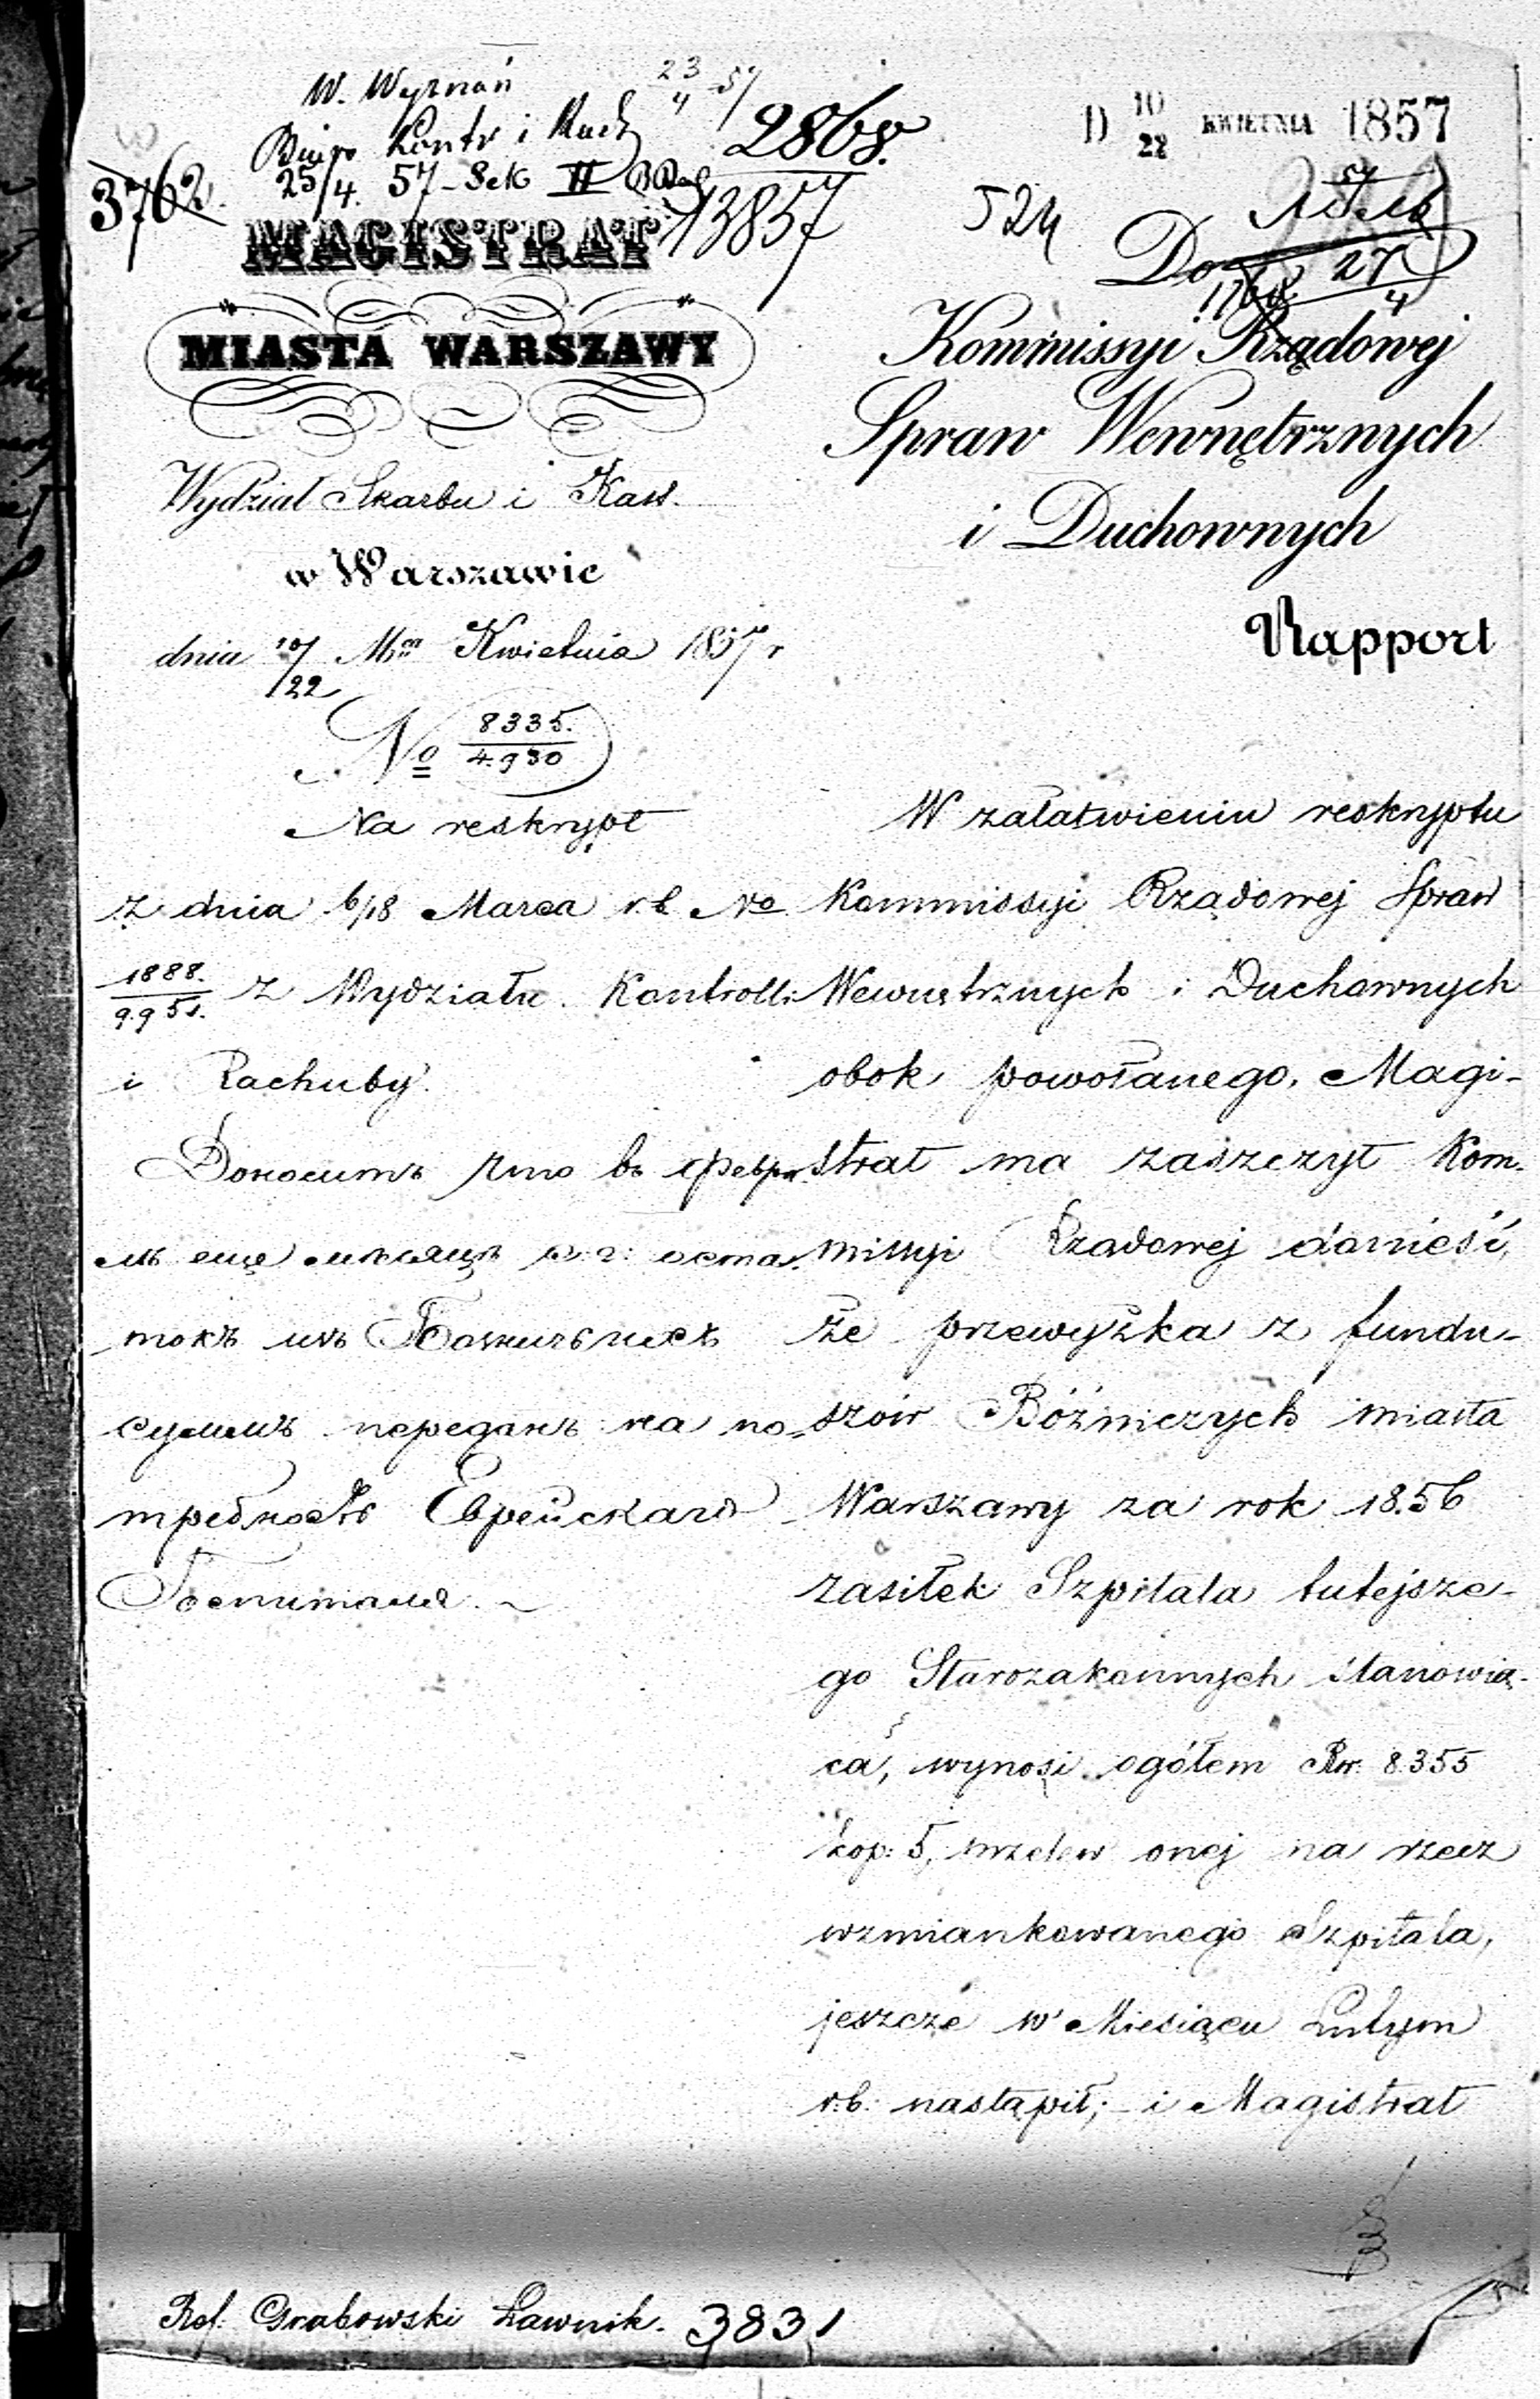 W. Wyznań
23/4 57
Biuro Kontr i Rach
2868.
25/4. 57 - Sek II
13857
D 10/22 KWIETNIA 1857
3762.
524
27/4
MAGISTRAT
MIASTA WARSZAWY
Wydział Skarbu i Kass.
w Warszawie
dnia 10/22 Mca Kwietnia 1857 r
No 8335./4.930
Na reskrypt
z dnia 6/18 Marca r.b. No
1888./995. z Wydziału Kontrolli
i Rachuby.
Доноситъ что въ Февра-
лѣ еще мѣсяцѣ с: г: оста-
токъ изъ Божничныхъ
суммъ переданъ на по-
требность Еврейскаго
Госпиталя. ~
Do
Kommissyi Rządowej
Spraw Wewnętrznych
i Duchownych
Rapport
W załatwieniu reskryptu
Kommissyi Rządowej Spraw
Wewnętrznych i Duchownych
obok powołanego, Magi-
strat ma zaszczyt Kom-
missyi Rządowej donieść,
że przewyżka z fundu-
szów Bóżniczych miasta
Warszawy za rok 1856
zasiłek Szpitala tutejsze-
go Starozakonnych stanowią-
ca, wynosi ogółem Rsr. 8355
kop: 5, przelew onej na rzecz
wzmiankowanego Szpitala,
jeszcze w Miesiącu Lutym
r.b. nastąpił; i Magistrat
Ref. Grabowski Ławnik. 3831